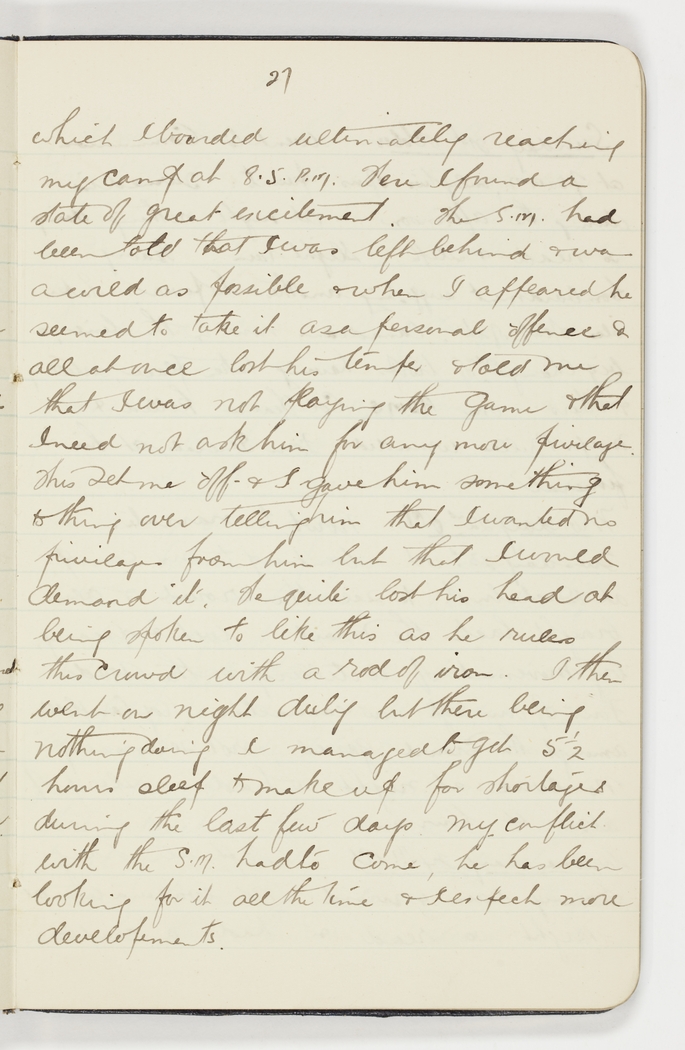 27
which I boarded ultimately reaching
my camp at 8.5. P.M. Here I found a
state of great excitement. The S.M. had
been told that I was left behind & was
a wild as possible & when I appeared he
seemed to take it as a personal offence &
all at once lost his temper & told me
that I was not playing the game & that
I need not ask him for any more privilage.
This set me off & I gave him something
to thing over telling him that I wanted no
privilages from him but that I would
demand it. He quite lost his head at
being spoken to like this as he rules
this crowd with a rod of iron. I then
went on night duty but there being
nothing doing I managed to get 5½
hours sleep to make up for shortages
during the last few days. My conflict
with the S.M. had to come, he has been
looking for it all the time & I expect more
developements.